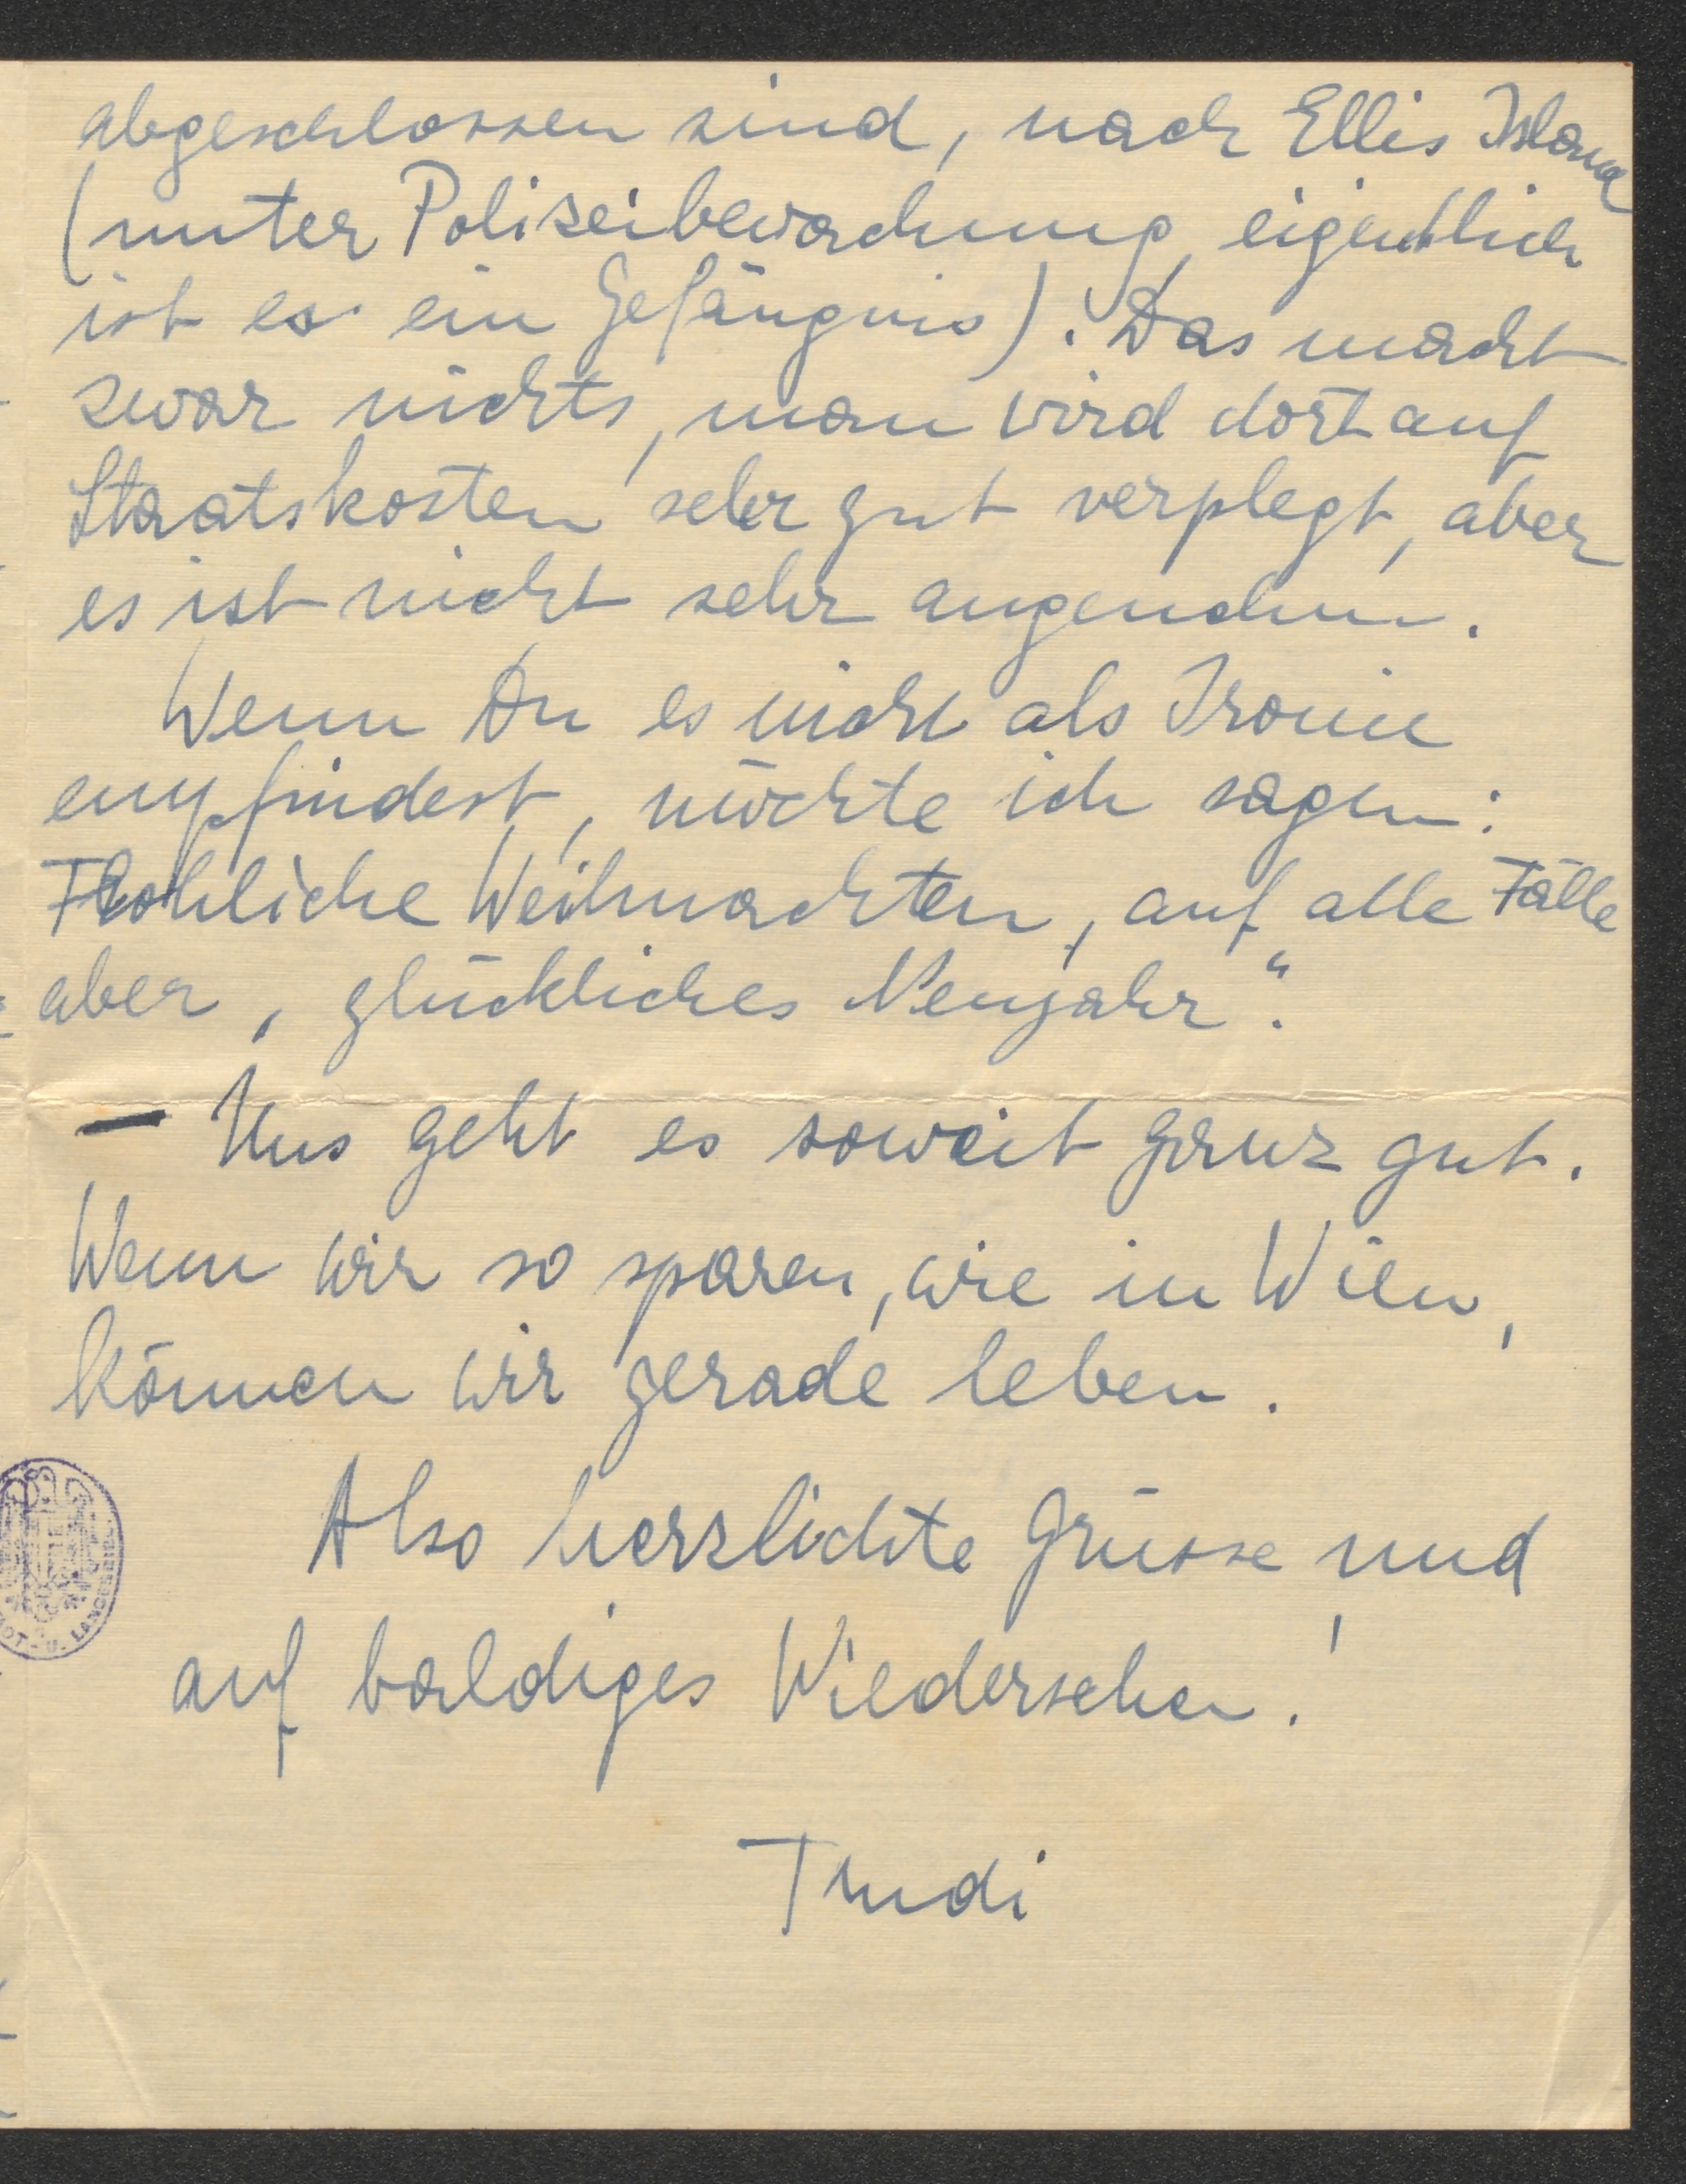 abgeschlossen sind, nach Ellis Island
(unter Polizeibewachung, eigentlich
ist es ein Gefängnis). Das macht
zwar nichts, man wird dort auf
Staatskosten sehr gut verplegt, aber
es ist nicht sehr angenehm.
Wenn Du es nicht als Ironie
empfindest, möchte ich sagen:
Frohliche Weihnachten, auf alle Fälle
aber „glückliches Neujahr“.
— Uns geht es soweit ganz gut.
Wenn wir so sparen, wie in Wien,
können wir gerade leben.
Also herzlichte Grüsse und
auf baldiges Wiedersehen!
Trudi